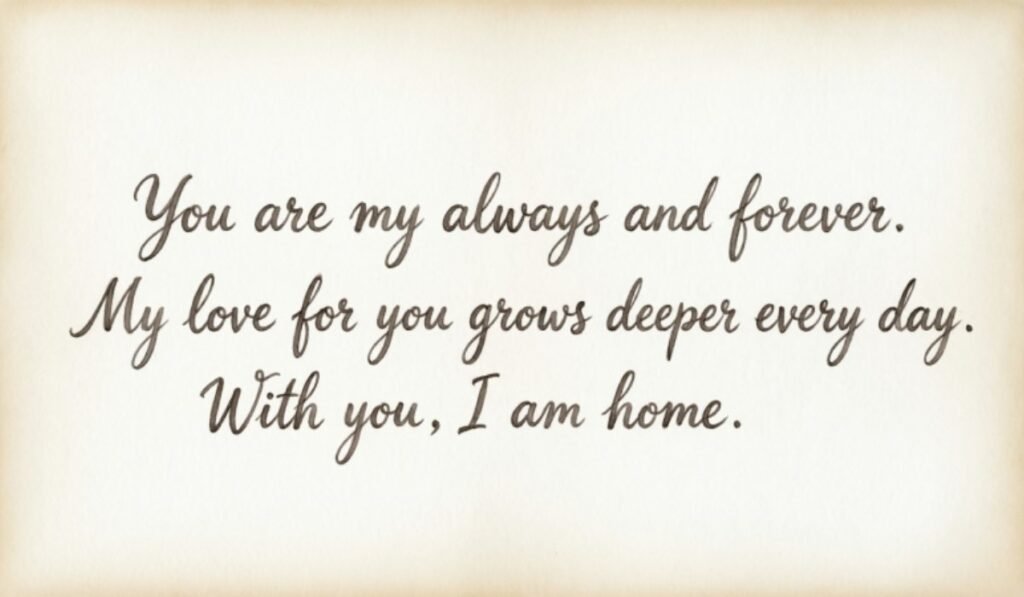 You are my always and forever.
My love for you grows deeper every day.
With you, I am home.